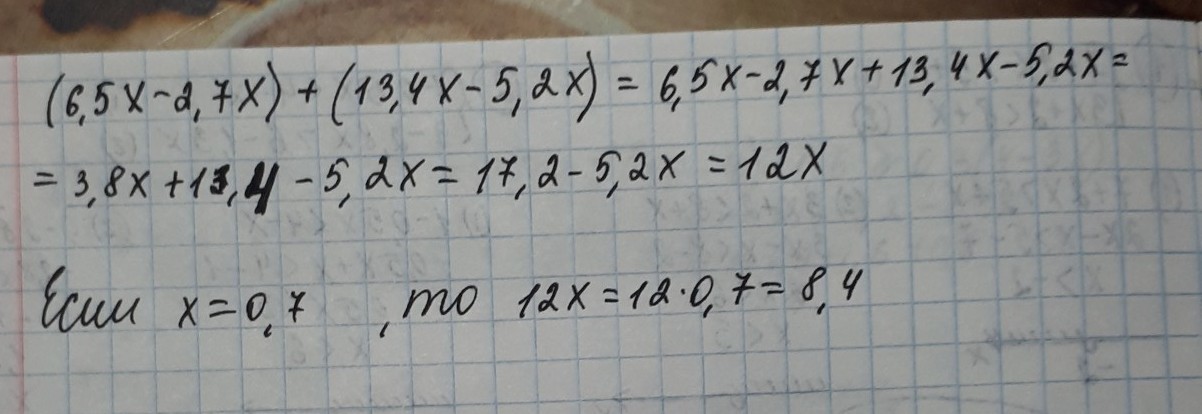 (6,5x-2,7x)+(13,4x-5,2x)=6,5x-2,7x+13,4x-5,2x=
=3,8x+13,4-5,2x=17,2-5,2x=12x
Если x=0,7 , то 12x=12·0,7=8,4